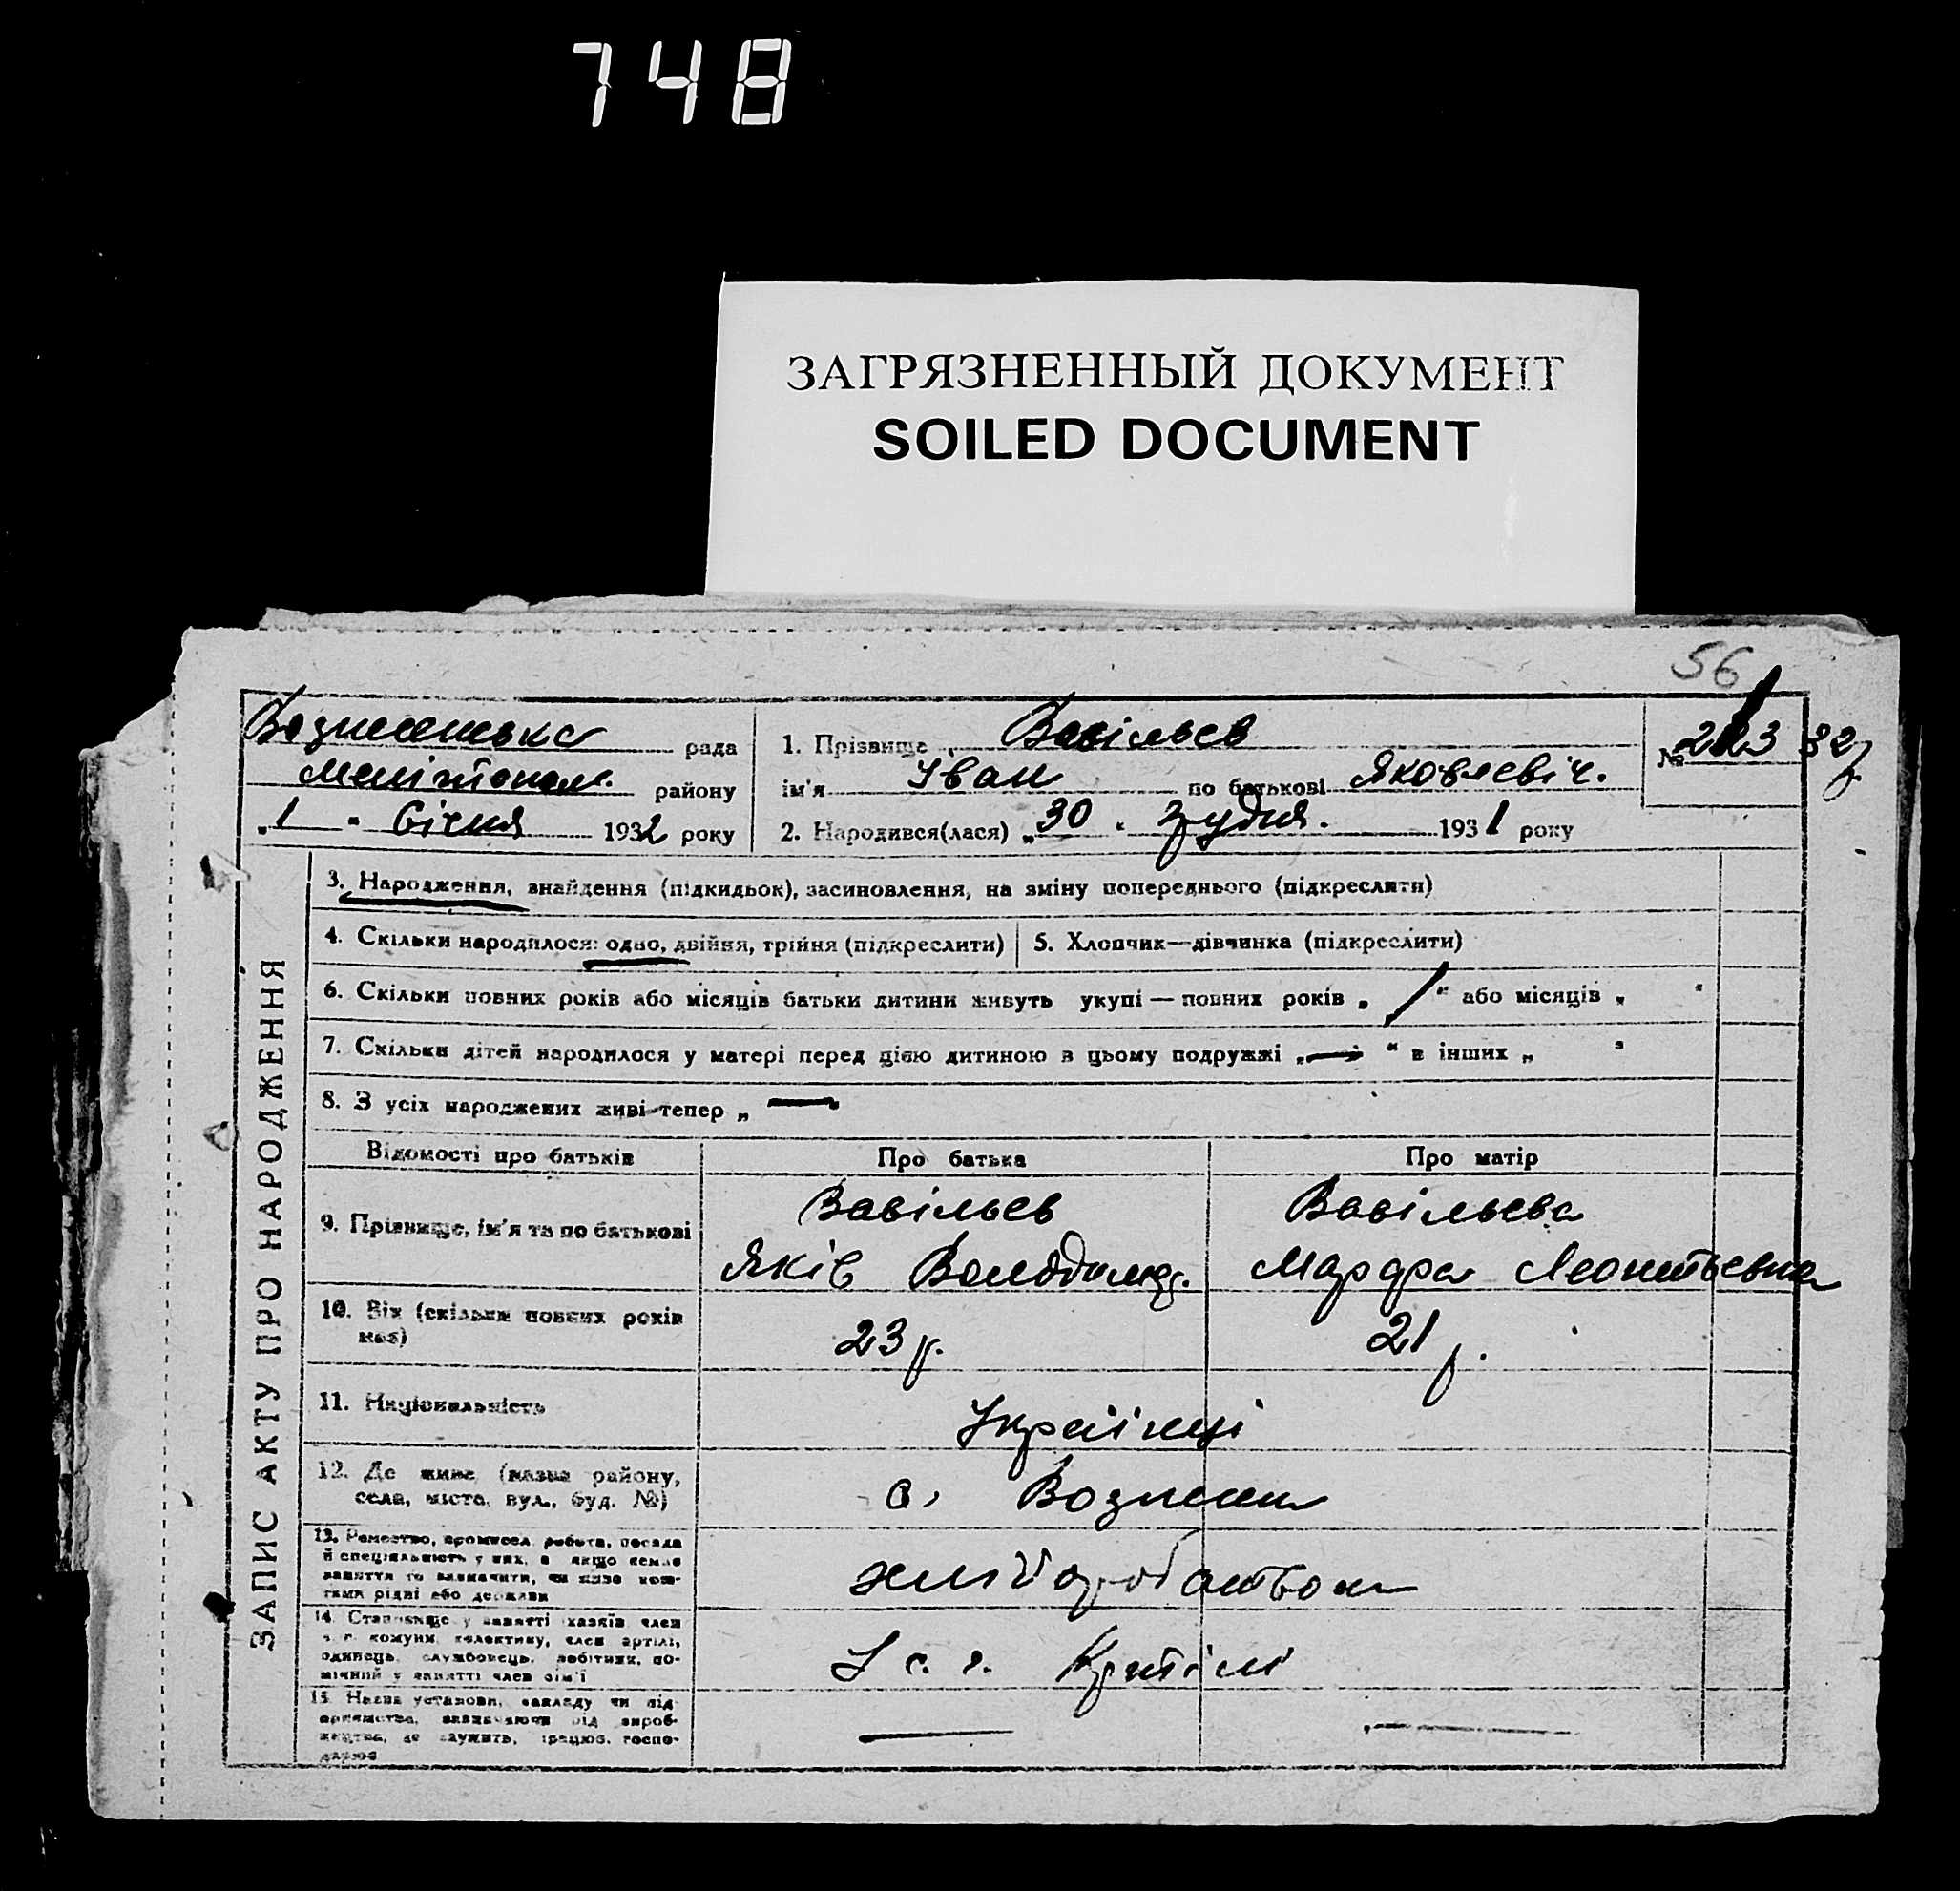 748
ЗАГРЯЗНЕННЫЙ ДОКУМЕНТ
SOILED DOCUMENT
56
Вознесенська рада
Мелітопол. району
„1 " Січня 1932 року
1. Прізвище Вавільєв
ім'я Іван по батькові Яковлевіч.
2. Народився(лася) „30 " грудня. 1931 року
№ 32р
ЗАПИС АКТУ ПРО НАРОДЖЕННЯ
3. Народження, знайдення (підкидьок), засиновлення, на зміну попереднього (підкреслити)
4. Скільки народилося: одно, двійня, трійня (підкреслити) 5. Хлопчик—дівчинка (підкреслити)
6. Скільки повних років або місяців батьки дитини живуть укупі — повних років „ / " або місяців „ "
7. Скільки дітей народилося у матері перед цією дитиною в цьому подружжі „ — " в інших „ "
8. З усіх народжених живі тепер „ — "
Відомості про батьків Про батька Про матір
9. Прізвище, ім'я та по батькові
Вавільєв Вавільєва
Яків Володимер. Марфа Леонтьевна
10. Вік (скільки повних років має) 23 р. 21 р.
11. Національність Українці
12. Де живе (назва району,
села, міста, вул., буд. №) с. Вознесен
13. Ремество, промисел, робота, посада
й спеціяльність у них, а якщо немає
заняття то визначити, чи живе кош-
тами рідні або держави
хліборобством
14. Становище у занятті хазяїн член
с. г. комуни, колективу, член артілі,
одинець, службовець, робітник, по-
мічний у занятті член сім'ї
У с. г. Артілі
15. Назва установи, закладу чи під-
приємства, визначаючи рід вироб-
ництва, де служить, працює, госпо-
дарює